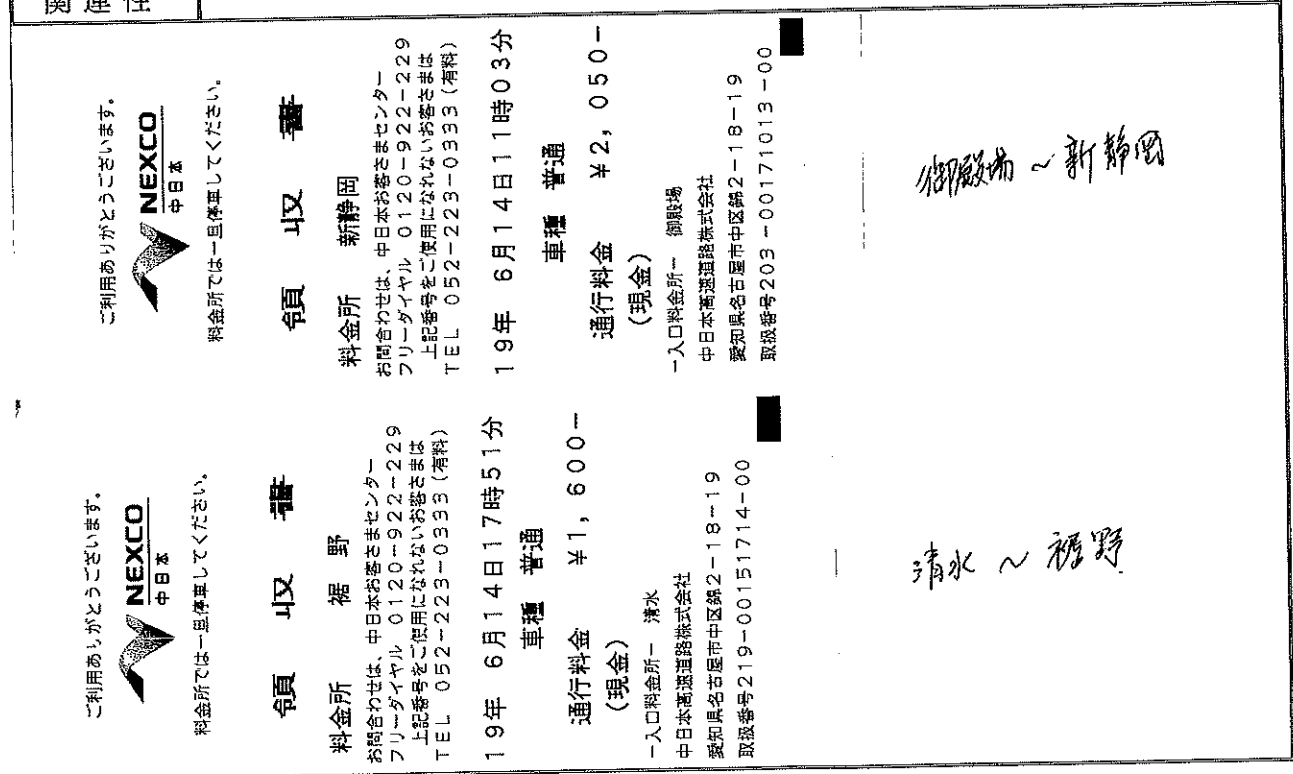 関連性
ご利用ありがとうございます。
NEXCO
中日本
料金所では一旦停車してください。
領収書
料金所 新静岡
お問合わせは、中日本お客さまセンター
フリーダイヤル 0120-922-229
上記番号をご使用になれないお客さまは
TEL 052-223-0333(有料)
19年 6月14日11時03分
車種 普通
通行料金 ¥2,050-
(現金)
-入口料金所- 御殿場
中日本高速道路株式会社
愛知県名古屋市中区錦2-18-19
取扱番号203-00171013-00
御殿場~新静岡
ご利用ありがとうございます。
NEXCO
中日本
料金所では一旦停車してください。
領収書
料金所 裾野
お問合わせは、中日本お客さまセンター
フリーダイヤル 0120-922-229
上記番号をご使用になれないお客さまは
TEL 052-223-0333(有料)
19年 6月14日17時51分
車種 普通
通行料金 ¥1,600-
(現金)
-入口料金所- 清水
中日本高速道路株式会社
愛知県名古屋市中区錦2-18-19
取扱番号219-00151714-00
清水~裾野